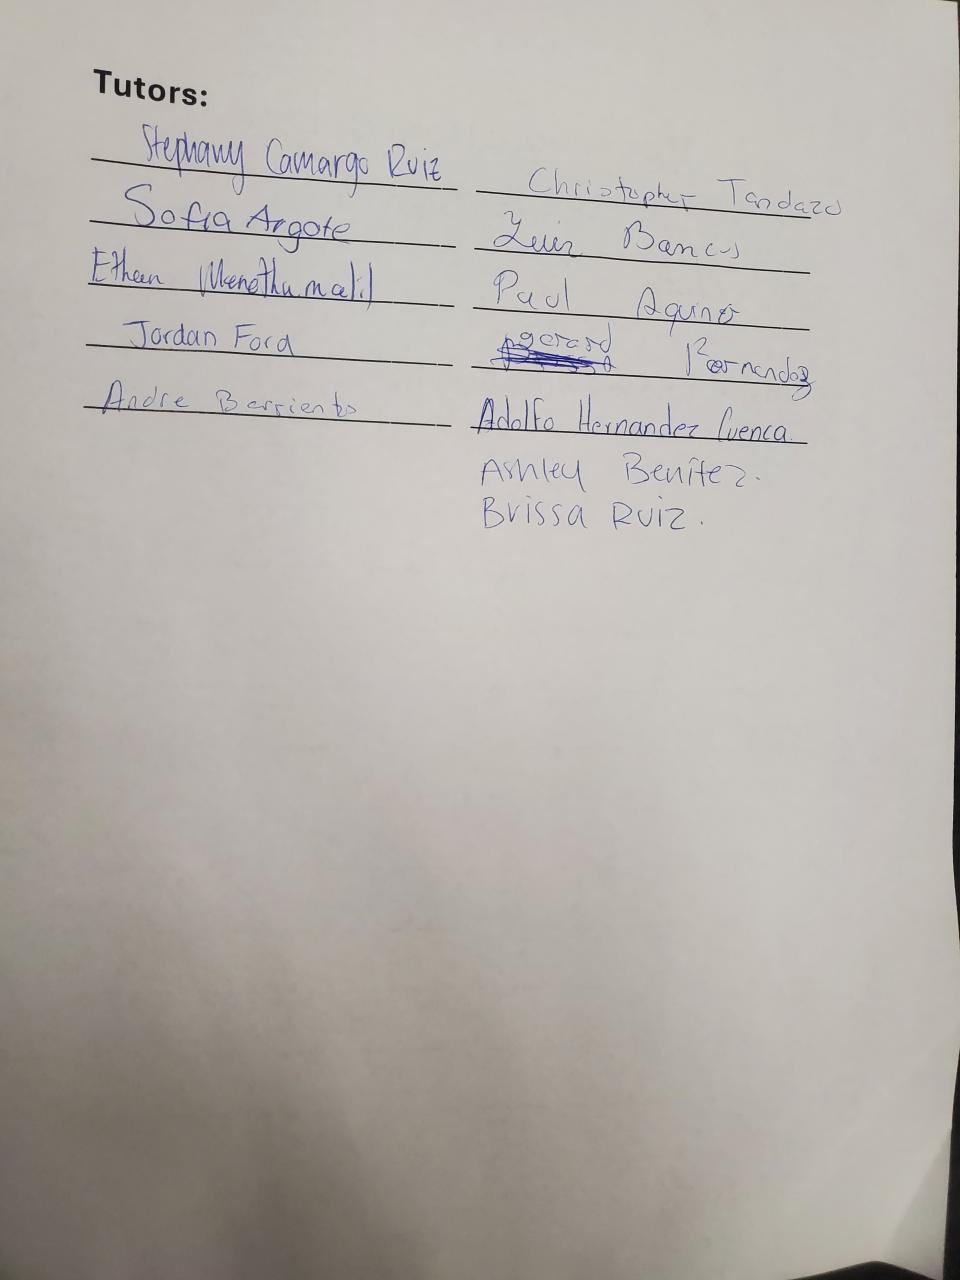 Tutors:
Stephany Camargo Ruiz
Sofia Argote
Ethan
Jordan Ford
Andre Barrientos
Christopher Tandazo
Bancos
Paul Aquino
gerard Fernandez
Adolfo Hernandez Cuenca.
Ashley Benítez.
Brissa Ruiz.